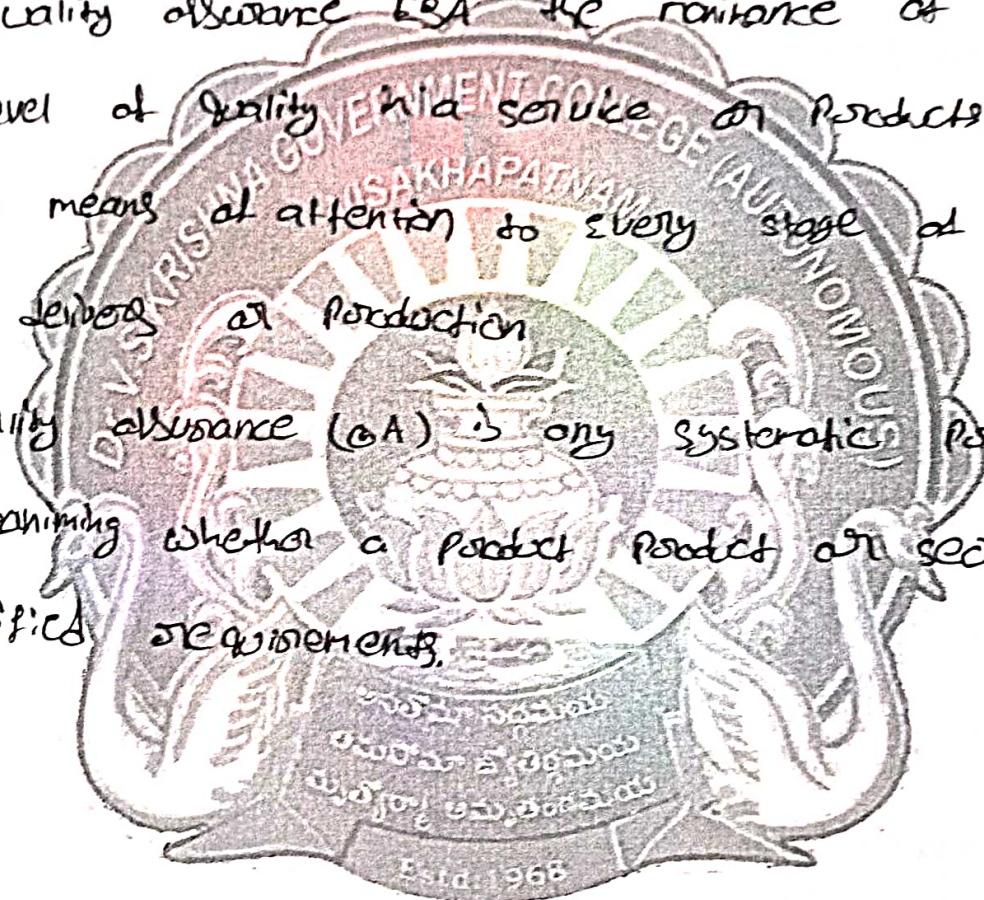 uality assurance the of
evel of Quality in a service or Products
means of attention to every stage of
or Production
lity assurance (QA) is any systematic
whether a product product or
ified requirements.
DR. V.S. KRISHNA GOVERNMENT COLLEGE (AUTONOMOUS)
VISAKHAPATNAM
అసతోమా సద్గమయ
తమసోమా జ్యోతిర్గమయ
మృత్యోర్మా అమృతంగమయ
Estd: 1968